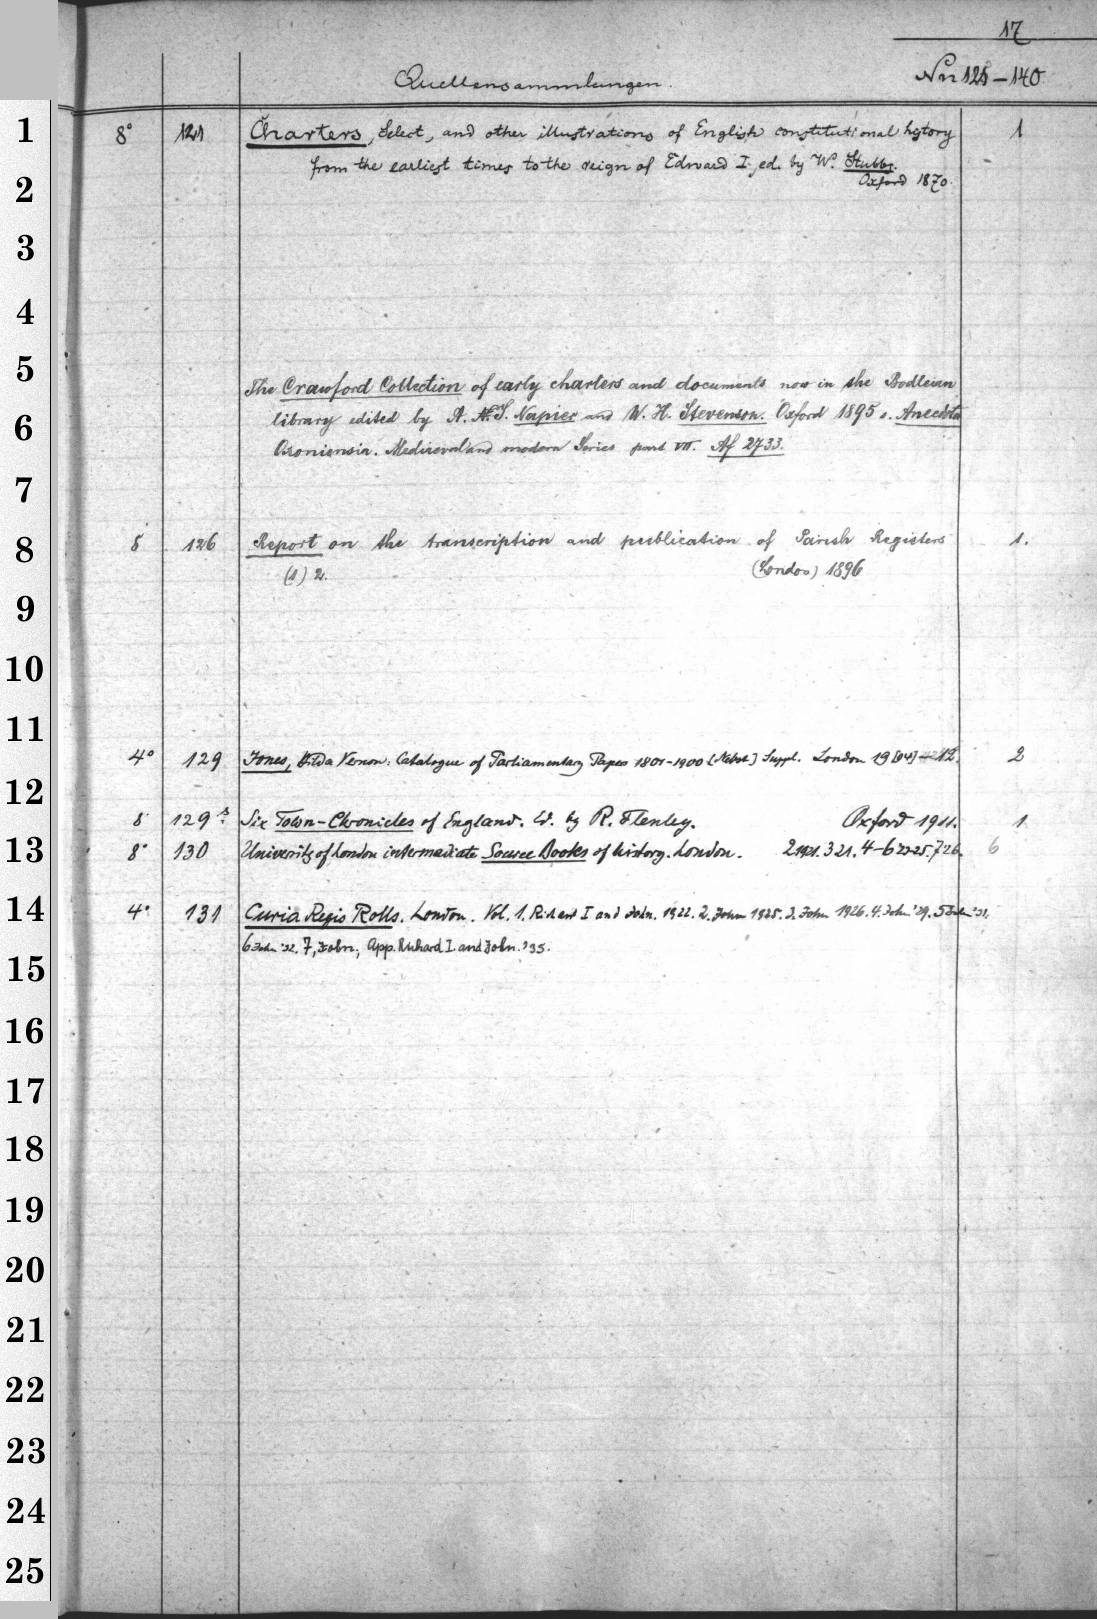 17
Quellensammlungen.
Nrr 121–140
1 8° 121 Charters, Select, and other illustrations of English constitutional history 1
from the earliest times to the reign of Edward I., ed. by W. Stubbs.
2 Oxford 1870.
3
4
5
The Crawford Collection of early charters and documents now in the Bodleian
6 library edited by A. S. Napier and W. H. Stevenson. Oxford 1895 s. Anecdota
Oxoniensia. Mediaeval and modern Series part VII. Af 2733.
7
8 8 126 Report on the transcription and publication of Parish Registers 1.
(1) 2. (London) 1896
9
10
11
4° 129 Jones, Hilda Vernon: Catalogue of Parliamentary Papers 1801–1900 [Nebst] Suppl. London 19[04]–12. 2
12
8 129 a Six Town-Chronicles of England. Ed. by R. Flenley. Oxford 1911. 1
13 8° 130 University of London intermediate Source Books of history. London. 2 1921. 3 21. 4–6 22-25. 7 26. 6
14 4° 131 Curia Regis Rolls. London. Vol. 1. Richard I and John. 1922. 2. John 1925. 3. John 1926. 4. John '29. 5 John '31.
6 John '32. 7, John, App. Richard I. and John. '35.
15
16
17
18
19
20
21
22
23
24
25